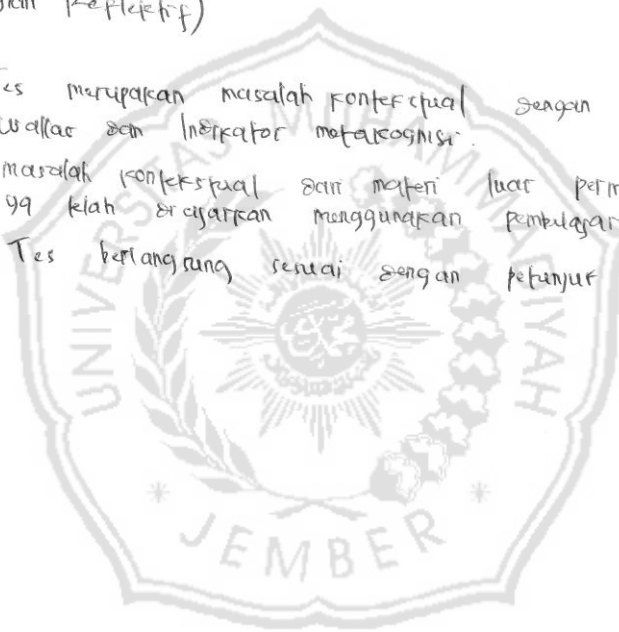 dan Reflektif)
Tes merupakan masalah kontekstual dengan
wallas dan Indikator metakognisi.
masalah kontekstual dari materi luar perm
yg telah diajarkan menggunakan pembelajar
Tes berlangsung sesuai dengan petunjuk
UNIVERSITAS MUHAMMADIYAH
* JEMBER *